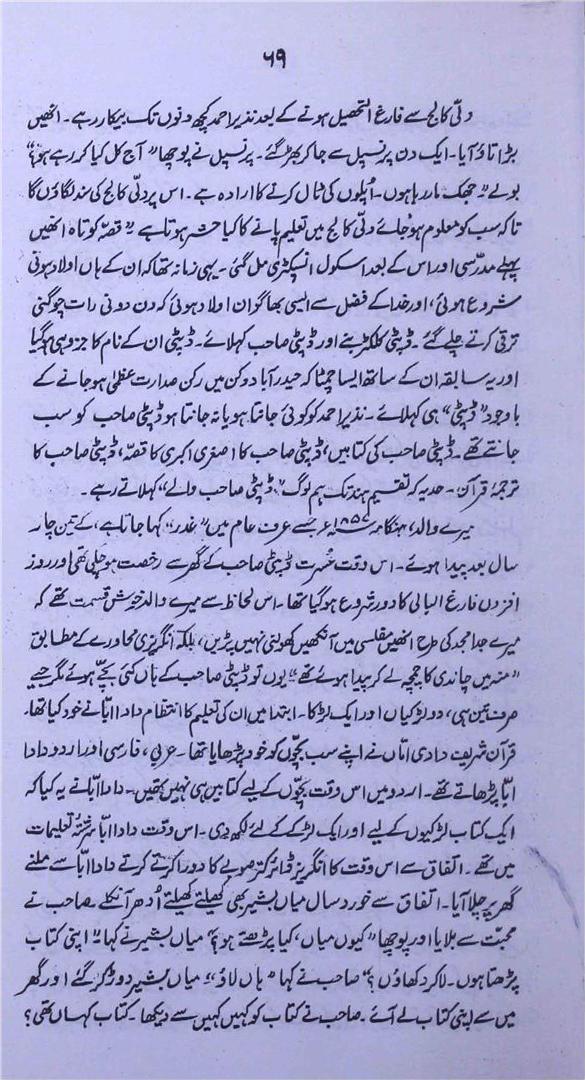 ۶۹
دلّی کالج سے فارغ التحصیل ہونے کے بعد نذیر احمد کچھ دنوں تک بیکار رہے۔ انھیں
بڑا تاؤ آیا۔ ایک دن پرنسپل سے جا کر بھڑ گئے۔ پرنسپل نے پوچھا "آج کل کیا کر رہے ہو؟"
بولے "جھک مار رہا ہوں۔ اُپلوں کی ٹال کرنے کا ارادہ ہے۔ اس پر دلّی کالج کی سند لگاؤں گا
تاکہ سب کو معلوم ہو جائے دلّی کالج میں تعلیم پانے کا کیا حشر ہوتا ہے" قصّہ کوتاہ انھیں
پہلے مدرّسی اور اس کے بعد اسکول انسپکٹری مل گئی۔ یہی زمانہ تھا کہ ان کے ہاں اولاد ہونی
شروع ہوئی، اور خدا کے فضل سے ایسی بھاگوان اولاد ہوئی کہ دن دونی رات چوگنی
ترقی کرتے چلے گئے۔ ڈپٹی کلکٹر بنے اور ڈپٹی صاحب کہلائے۔ ڈپٹی ان کے نام کا جزو ہی ہو گیا
اور یہ سابقہ ان کے ساتھ ایسا چمٹا کہ حیدرآباد دکن میں رکن صدارت عظمٰی ہو جانے کے
باوجود "ڈپٹی" ہی کہلائے۔ نذیر احمد کو کوئی جانتا ہو یا نہ جانتا ہو ڈپٹی صاحب کو سب
جانتے تھے۔ ڈپٹی صاحب کی کتابیں، ڈپٹی صاحب کا اصغری اکبری کا قصّہ، ڈپٹی صاحب کا
ترجمۂ قرآن۔ حد یہ کہ تقسیم ہند تک ہم لوگ "ڈپٹی صاحب والے" کہلاتے رہے۔
میرے والد، ہنگامہ ۱۸۵۷ء جسے عرف عام میں "غدر" کہا جاتا ہے، کے تین چار
سال بعد پیدا ہوئے۔ اس وقت عُسرت ڈپٹی صاحب کے گھر سے رخصت ہو چلی تھی اور روز
افزوں فارغ البالی کا دور شروع ہو گیا تھا۔ اس لحاظ سے میرے والد خوش قسمت تھے کہ
میرے جد امجد کی طرح انھیں مفلسی میں آنکھیں کھولنی نہیں پڑیں، بلکہ انگریزی محاورے کے مطابق
"منہ میں چاندی کا چمچہ لے کر پیدا ہوئے تھے" یوں تو ڈپٹی صاحب کے ہاں کئی بچّے ہوئے مگر جیے
صرف تین ہی، دو لڑکیاں اور ایک لڑکا۔ ابتدا میں ان کی تعلیم کا انتظام دادا ابّا نے خود کیا تھا۔
قرآن شریف دادی امّاں نے اپنے سب بچّوں کو خود پڑھایا تھا۔ عربی، فارسی اور اردو دادا
ابّا پڑھاتے تھے۔ اردو میں اس وقت بچّوں کے لیے کتابیں ہی نہیں تھیں۔ دادا ابّا نے یہ کیا کہ
ایک کتاب لڑکیوں کے لیے اور ایک لڑکے کے لئے لکھ دی۔ اس وقت دادا ابّا سررشتۂ تعلیمات
میں تھے۔ اتفاق سے اس وقت کا انگریز ڈائرکٹر صوبے کا دورا کرتے کرتے دادا ابّا سے ملنے
گھر پر چلا آیا۔ اتفاق سے خورد سال میاں بشیر بھی کھیلتے کھیلتے اُدھر آ نکلے۔ صاحب نے
محبّت سے بلایا اور پوچھا "کیوں میاں، کیا پڑھتے ہو؟" میاں بشیر نے کہا "اپنی کتاب
پڑھتا ہوں۔ لا کر دکھاؤں؟" صاحب نے کہا "ہاں لاؤ"۔ میاں بشیر دوڑ کر گئے اور گھر
میں سے اپنی کتاب لے آئے۔ صاحب نے کتاب کو کہیں کہیں سے دیکھا۔ کتاب کہاں تھی؟